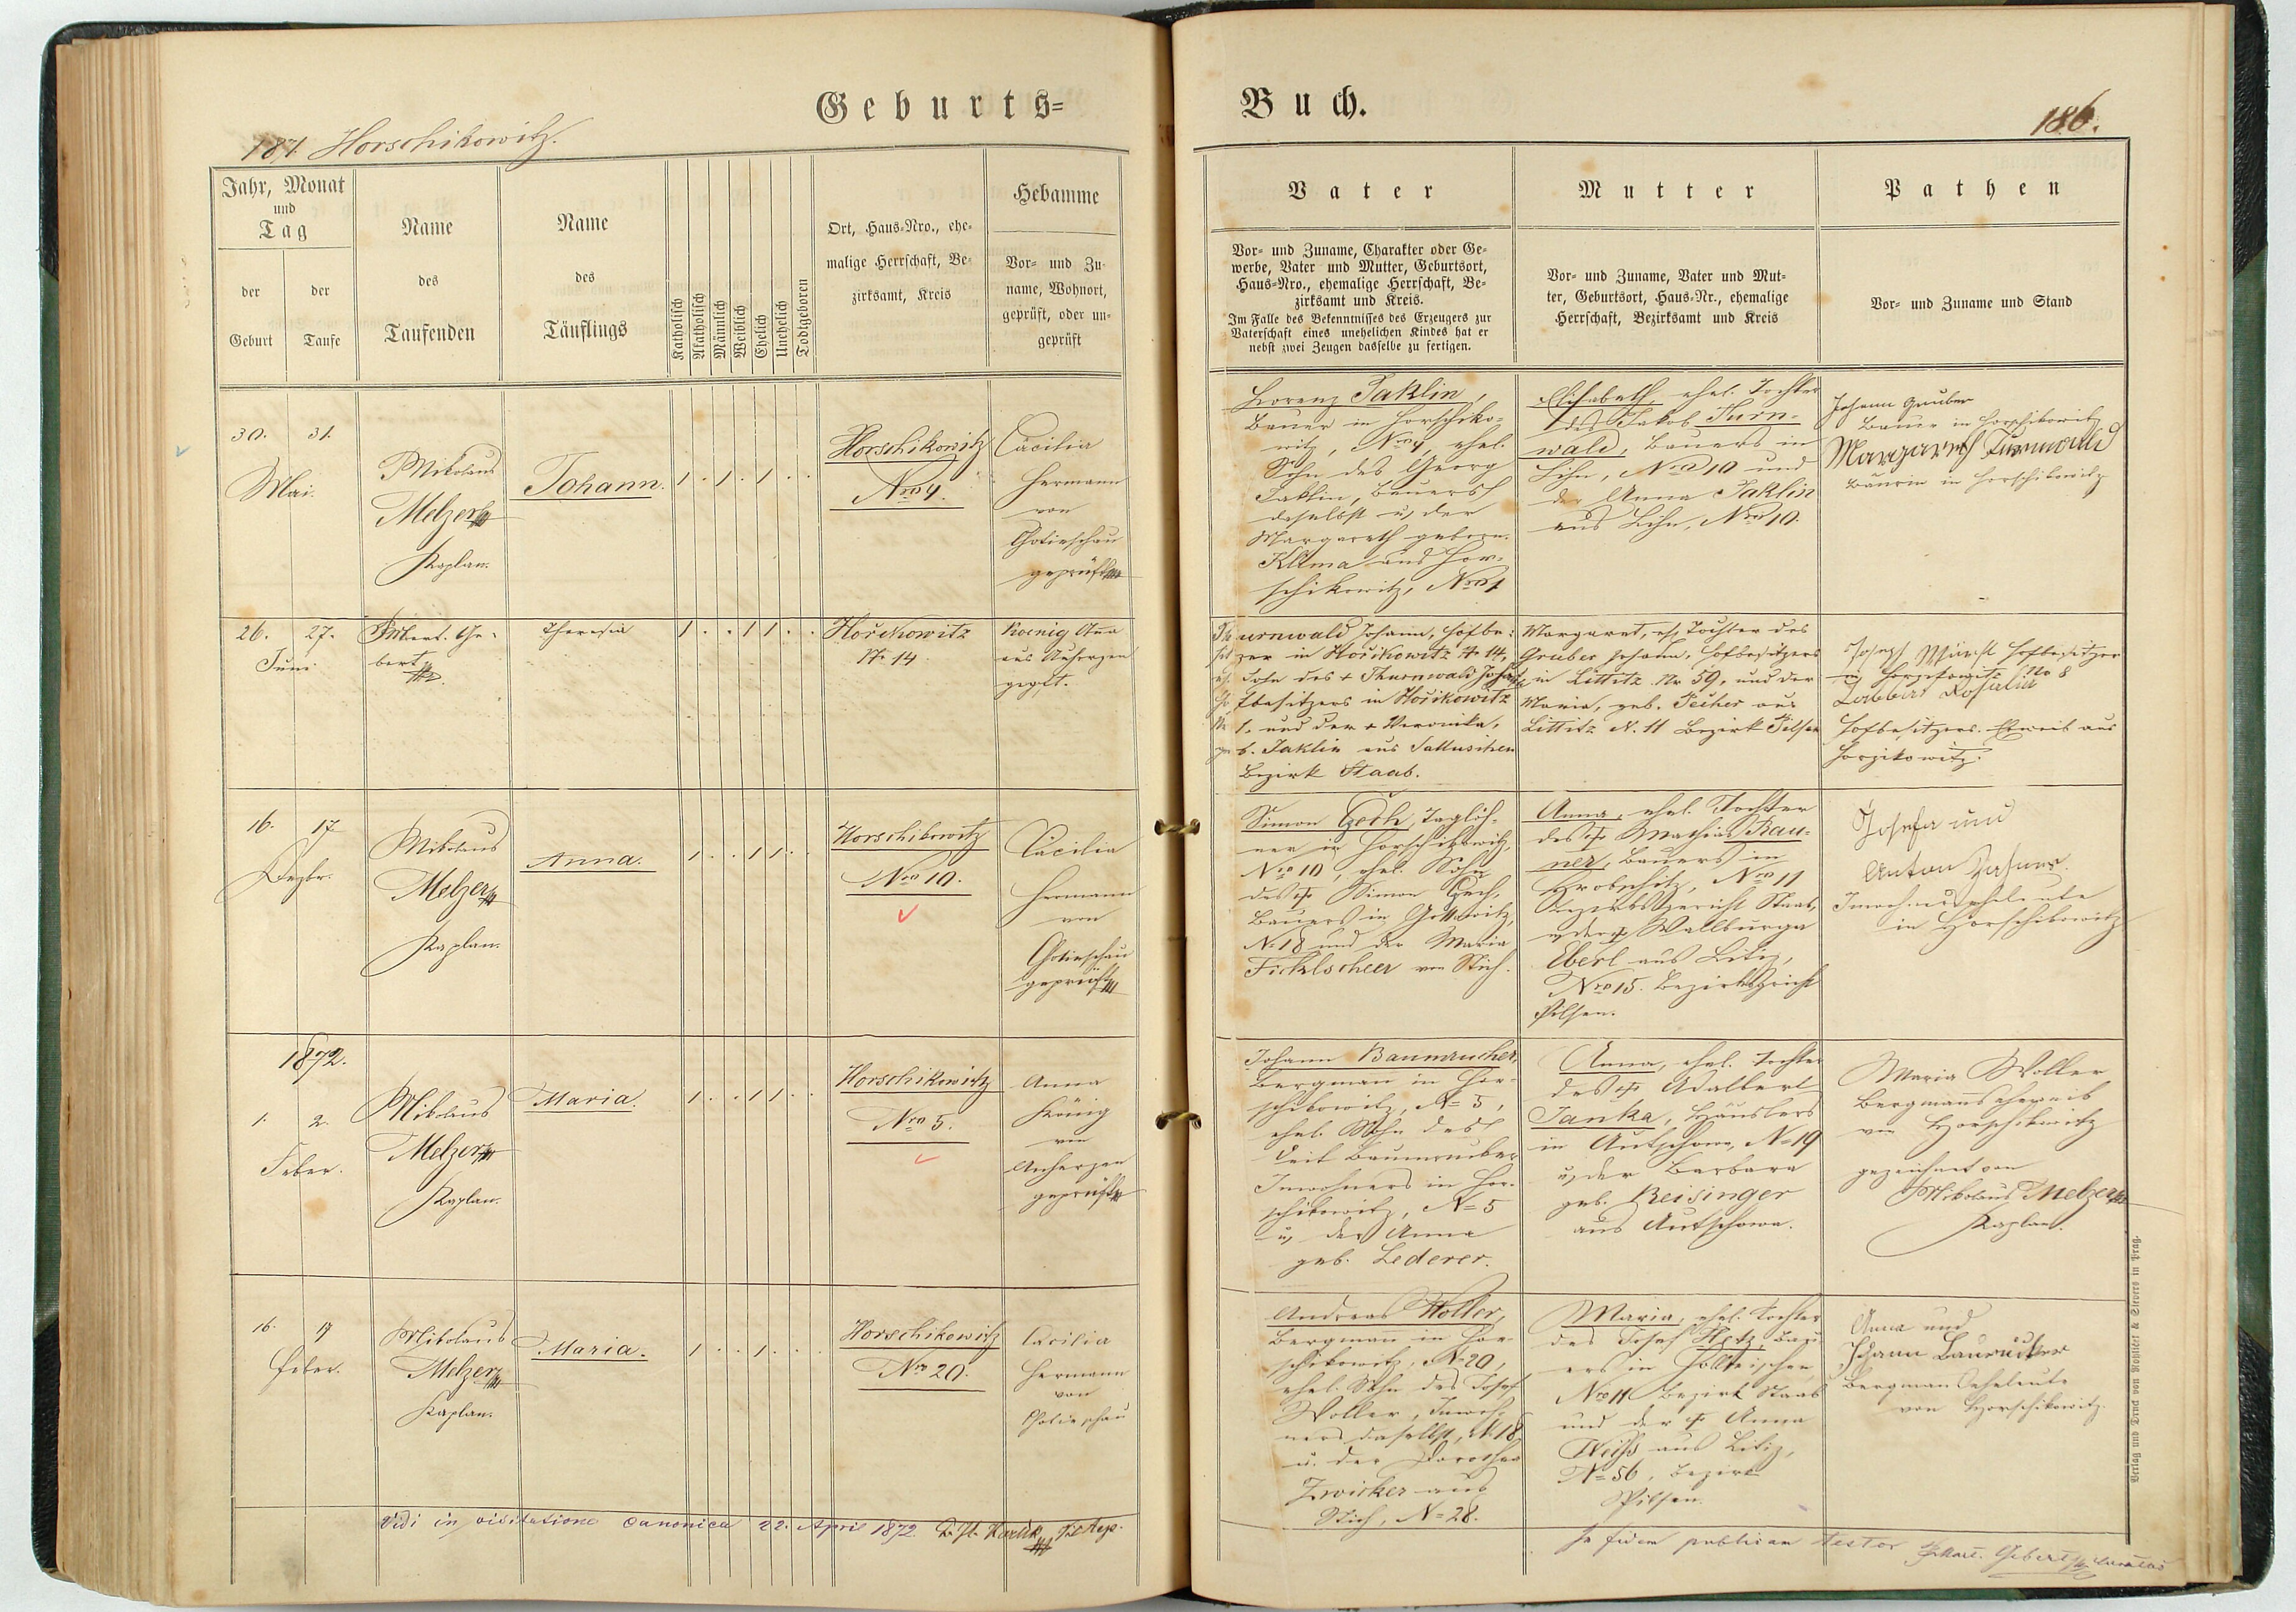 Geburts=
Buch.
187. Horschikowitz.
186.
Jahr, Monat
und
Tag
der
Geburt
der
Taufe
Name
des
Taufenden
Name
des
Täuflings
Katholisch
Akatholisch
Männlich
Weiblich
Ehelich
Unehelich
Todtgeboren
Ort, Haus=Nro., ehe=
malige Herrschaft, Be=
zirksamt, Kreis
Hebamme
Vor= und Zu=
name, Wohnort,
geprüft, oder un=
geprüft
Vater
Vor= und Zuname, Charakter oder Ge=
werbe, Vater und Mutter, Geburtsort,
Haus=Nro., ehemalige Herrschaft, Be=
zirksamt und Kreis.
Im Falle des Bekenntnisses des Erzeugers zur
Vaterschaft eines unehelichen Kindes hat er
nebst zwei Zeugen dasselbe zu fertigen.
Mutter
Vor= und Zuname, Vater und Mut=
ter, Geburtsort, Haus=Nr., ehemalige
Herrschaft, Bezirksamt und Kreis
Pathen
Vor= und Zuname und Stand
30. 31.
Mai.
Nikolaus
Melzer
Kaplan.
Johann.
1 . 1 . 1 . .
Horschikowitz
Nro 4.
Cäcilia
Hermann
von
Chotieschau
geprüft
Lorenz Jaklin,
Bauer in Horschiko-
witz, Nro 4, ehel.
Sohn des Georg
Jaklin, Bauers
daselbst u. der
Margareth geborn.
Klima aus Hor-
schikowitz, Nro 1
Elisabeth, ehel. Tochter
des Jakob Turn-
wald, Bauers in
Lihn, Nro 10 und
der Anna Jaklin
aus Lihn, Nro 10.
Johann Gruber
Bauer in Horschikowitz
Margareth Turnwald
Bäurin in Horschikowitz
26. 27.
Juni
Norbert Ge-
bert
Theresia
1 . . 1 1 . .
Hořikowitz
N. 14
Koenig Anna
aus Auherzen
gepft.
Thurnwald Johann, Hofbe-
sitzer in Hořikowitz N. 14,
Sohn des + Thurnwald Johann
Hofbesitzers in Hořikowitz
1. und der + Veronika,
geb. Jaklin aus
Bezirk Staab.
Margaret, eh. Tochter des
Gruber Johann, Hofbesitzers
in Littitz Nr 59, und der
Maria, geb. Pecher aus
Littitz N. 11 Bezirk Pilsen
Josef Hofbesitzer
in Nr 8
Rosalia
Hofbesitzers Eheweib aus
Horzikowitz.
16. 17
Dezbr.
Nikolaus
Melzer
Kaplan.
Anna.
1 . . 1 1 . .
Horschikowitz
Nro 10.
Cäcilia
Hermann
von
Chotieschau
geprüft
Simon Czech, Taglöh-
ner in Horschikowitz,
Nro 10, ehel. Sohn
des + Simon Czech,
Bauers in Gottowitz,
N. 18 und der Maria
Ficklscheer von Stich.
Anna, ehel. Tochter
des + Mathias Rau-
ner, Bauers in
Hrobschitz, Nro 11
Bezirksgericht Staab,
u. der + Wallburga
Eberl aus Litiz,
Nro 15. Bezirksgericht
Pilsen.
Josefa und
Anton
Inwohnerseheleute
in Horschikowitz
1872.
1. 2.
Feber.
Nikolaus
Melzer
Kaplan.
Maria.
1 . . 1 1 . .
Horschikowitz
Nro 5.
Anna
König
von
Auherzen
geprüft
Johann Baumrucker,
Bergman in Hor-
schikowitz, N= 5,
ehel. Sohn des
Veit Baumrucker
Inwohners in Hor-
schikowitz, N= 5
u. der Anna
geb. Lederer.
Anna, ehel. Tochter
des + Adalbert
Janka, Häuslers
in Autschowa, N= 19
u. der Barbara
geb. Reisinger
aus Autschowa.
Maria Woller
Bergmans Eheweib
von Horschikowitz
gezeichnet von
Nikolaus Melzer
Kaplan.
16. 17
Feber.
Nikolaus
Melzer
Kaplan.
Maria.
1 . . 1 . . .
Horschikowitz
Nro 20.
Cäcilia
Hermann
von
Chotieschau
Andreas Woller,
Bergmann in Hor-
schikowitz, N= 20,
ehel. Sohn des Josef
Woller, Inwoh-
ners daselbst, N. 18
u. der Dorothea
Zwicker aus
Stich, N= 28.
Maria, ehel. Tochter
des Josef Hetz, Bau-
ers in
Nro 11 Bezirk Staab
und der + Anna
Weiss aus Litiz,
N= 56, Bezirk
Pilsen.
Anna und
Johann Baumrucker
Bergman Eheleute
von Horschikowitz.
Vidi in visitatione canonica 22. April 1872
In fidem publicam testor Gebert
Verlag und Druck von Rohliček & Sievers in Prag.